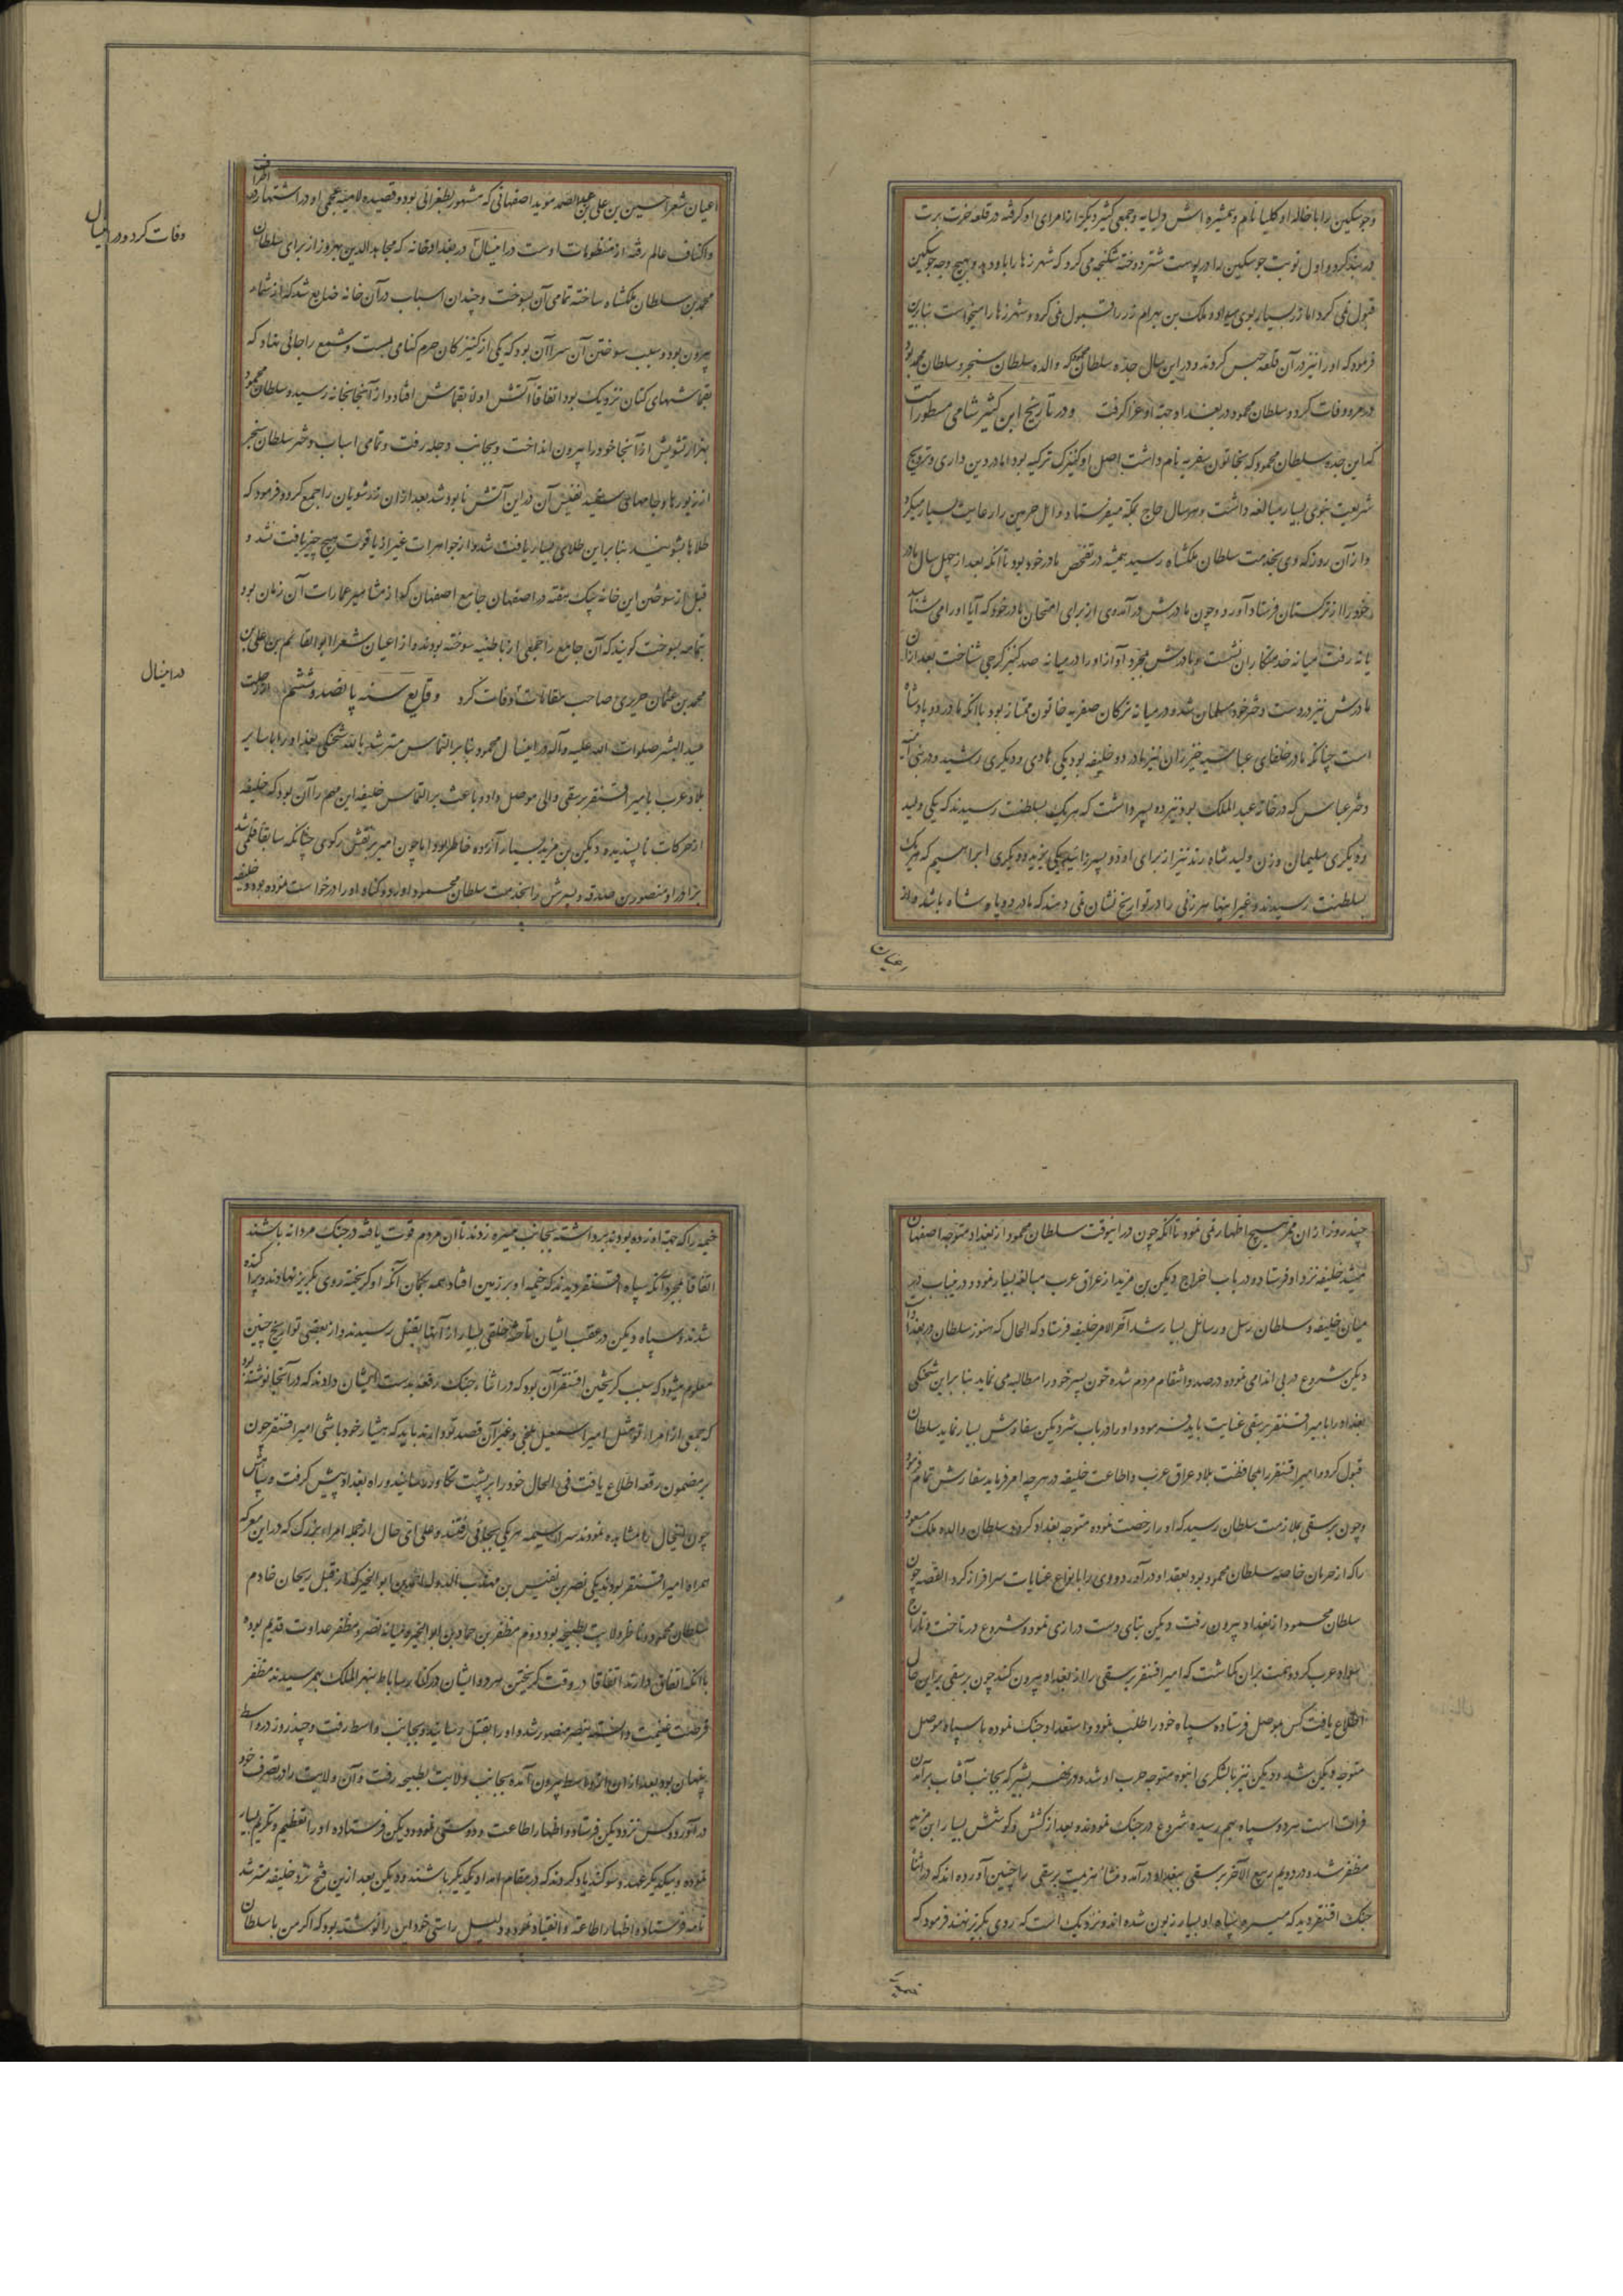 وجوسکین را با خاله او کلیا نام و همشیره اش ولیا یه و جمعی کثیر دیگر از امرای او گرفته در قلعه خرت برت
در بند کرد و اول نوبت جوسکین را در پوست شتر دوخته شکنجه می کرد که شهر زها را باو دهد و بهیچ وجه جوسکین
قبول نمی کرد اما زر بسیار بوی میداد و ملک بن بهرام زر را قبول نمی کرد و شهر زها را میخواست بنابرین
فرمود که او را نیز در آن قلعه حبس کردند و در این سال جده سلطان محمود که والده سلطان سنجر و سلطان محمد بود
در مرو وفات کرد و سلطان محمود در بغداد جهة او عزا گرفت و در تاریخ ابن کثیر شامی مسطور است
که این جده سلطان محمود که بخاتون سفریه نام داشت اصل او کنیزک ترکیه بود اما در دین داری و ترویج
شریعت نبوی بسیار مبالغه داشت و هر سال حاج بمکه میفرستاد و اهل حرمین را رعایت بسیار میکرد
و از آن روز که وی بخدمت سلطان ملکشاه رسید همیشه در تفحص مادر خود بود تا آنکه بعد از چهل سال مادر
خود را از ترکستان فرستاد آورد و چون مادرش در آمد وی از برای امتحان مادر خود که آیا او را می شناسد
یا نه رفت میانه خدمتکاران نشست و مادرش بمجرد آواز او را در میانه صد کنیزک می شناخت بعد از آن
مادرش نیز در دست دختر خود مسلمان شد و در میانه ترکان صفریه خاتون ممتاز بود با آنکه مادر دو پادشاه
است چنانکه مادر خلفای عباسیه خیزران نیز مادر دو خلیفه بود یکی هادی و دیگری رشید و در بنی امیه
دختر عباس که در خانه عبد الملک بود نیز دو پسر داشت که هر یک بسلطنت رسیدند که یکی ولید
و دیگری سلیمان و زن ولید شاه رند نیز از برای او دو پسر زائید یکی یزید و دیگری ابراهیم که هر یک
بسلطنت رسیدند و غیر اینها هر زنی را در تواریخ نشان نمی دهند که مادر دو پادشاه باشد و از
اعیان
اعیان شعرا حسین بن علی بن عبد الصمد موید اصفهانی که مشهور بطغرائی بود و قصیده لامیة عجمی او در اشتهار در اطراف
و اکناف عالم رفته از منظومات اوست در اینسال در بغداد خانه که مجاهد الدین بهروز از برای سلطان
وفات کرد و در اینسال
محمد بن سلطان ملکشاه ساخته تمامی آن بسوخت و چندان اسباب در آن خانه ضایع شد که از شمار
بیرون بود و سبب سوختن آن سرا آن بود که یکی از کنیزکان حرم کنا می بست و شمع را جائی نهاد که
بقماشهای کتان نزدیک بود اتفاقا آتش اولا بقماش افتاد و از آنجا بخانه رسید و سلطان محمود
بهزار تشویش از آنجا خود را بیرون انداخت و بجانب دجله رفت و تمامی اسباب دختر سلطان سنجر
از زیورها و جامهای سفید نفیس آن در این آتش نابود شد بعد از آن زرشویان را جمع کرد و فرمود که
طلاها بشویند بنابراین طلای بسیار یافت شد و از جواهرات غیر از یاقوت هیچ چیز یافت نشد و
قبل از سوختن این خانه بیک هفته در اصفهان جامع اصفهان که از مشاهیر عمارات آن زمان بود
بتمامه بسوخت گویند که آن جامع را جمعی از باطنیه سوخته بودند و از اعیان شعرا ابو القاسم بن علی بن
محمد بن عثمان حریری صاحب مقامات وفات کرد وقایع سنه پانصد و ششم از رحلت
در اینسال
خیر البشر صلوات الله علیه و آله در اینسال محمود بنابر التماس مسترشد بالله شحنگی بغداد را با سایر
بلاد عرب بامیر اقسنقر برسقی والی موصل داد و باعث بر التماس خلیفه این مهم را آن بود که خلیفه
از حرکات ناپسندیده دبیکن بن مزید بسیار آزرده خاطر بود اما چون امیر برتقش زکوی چنانکه سابقا قلمی شد
برادر او منصور بن صدقه و پسرش را بخدمت سلطان محمود آورد و گناه او را درخواست نموده بود و خلیفه
چند روز از آن ممر هیچ اظهار نمی نمود تا آنکه چون در اینوقت سلطان محمود از بغداد متوجه اصفهان
میشد خلیفه نزد او فرستاد و در باب اخراج دبیکن بن مزید از عراق عرب مبالغه بسیار نمود و در این باب
میان خلیفه و سلطان رسل و رسائل بسیار شد آخر الامر خلیفه فرستاد که الحال که هنوز سلطان در بغداد است
دبیکن شروع در بی اندامی نموده درصدد انتقام مردم شده خون پسر خود را مطالبه می نماید بنابراین شحنگی
بغداد را بامیر اقسنقر برسقی عنایت باید فرمود و او را در باب شر دبیکن سفارش بسیار نماید سلطان
قبول کرد و امیر اقسنقر را بمحافظت بلاد عراق عرب و اطاعت خلیفه در هر چه امر فرماید سفارش تمام فرمود
و چون برسقی بملازمت سلطان رسید که او را رخصت نموده متوجه بغداد کرد سلطان والده ملک مسعود
را که از حرمان خاصه سلطان محمود بود بعقد او در آورد و وی را بانواع عنایات سرافراز کرد القصه چون
سلطان محمود از بغداد بیرون رفت دبیکن بنای دست درازی نموده شروع در تاخت و تاراج
سواد عرب کرده همت بر آن گماشت که امیر اقسنقر برسقی را از بغداد بیرون کند چون برسقی بر این حال
اطلاع یافت کس بموصل فرستاده سپاه خود را طلب نمود و استعداد جنگ نموده با سپاه موصل
متوجه دبیکن شد و دبیکن نیز با لشکری انبوه متوجه حرب او شد و در نهر بشیر که بجانب آفتاب برآمدن
فرات است هر دو سپاه بهم رسیده شروع در جنگ نمودند و بعد از کشش و کوشش بسیار ابن مزید
مظفر شد و در دویم ربیع الاخر برسقی ببغداد در آمد و منشأ هزیمت برسقی را چنین آورده اند که در اثنا
جنگ اقسنقر دید که میسره سپاه او بسیار زبون شده اند و نزدیک است که روی بگریز نهند فرمود که
خیمه را که جهة او زده بودند برداشته بجانب میسره زدند تا آن مردم قوت یافته در جنگ مردانه باشند
اتفاقا بمجرد آنکه سپاه اقسنقر دیدند که خیمه او بر زمین افتاد همه بگمان آنکه او گریخته روی بگریز نهادند و پراکنده
شدند و سپاه دبیکن در عقب ایشان تاخته خلقی بسیار از آنها بقتل رسیدند و از بعضی تواریخ چنین
معلوم میشود که سبب گریختن اقسنقر آن بود که در اثنای جنگ رقعه بدست ایشان دادند که در آنجا نوشته بود
که جمعی از امراء تو مثل امیر اسمعیل بلخی و غیر آن قصد تو دارند باید که هشیار خود باشی امیر اقسنقر چون
بر مضمون رقعه اطلاع یافت فی الحال خود را بر پشت تکاور رسانید و راه بغداد پیش گرفت و سپاهش
چون اینحال را مشاهده نمودند سراسیمه هر یکی بجائی رفتند و علی ای حال از جمله امراء بزرگ که در این معرکه
همراه امیر اقسنقر بودند یکی نصر بن نفیس بن مهذب الدوله احمد بن ابو الخیر که از قبل ریحان خادم
سلطان محمود ناظر ولایت بطیحه بود دوم مظفر بن حماد بن ابو الخیر و میانه نصر و مظفر عداوت قدیم بود
با آنکه اتفاق دارند اتفاقا در وقت گریختن هر دو ایشان در کنار ساباط بنهر الملک بهم رسیدند مظفر
فرصت غنیمت دانسته بنصر منصور شد و او را بقتل رسانید و بجانب واسط رفت و چند روز در واسط
پنهان بود بعد از آن از واسط بیرون آمده بجانب ولایت بطیحه رفت و آن ولایت را در تصرف خود
در آورد و کس نزد دبیکن فرستاد و اظهار اطاعت و دوستی نمود و دبیکن فرستاده او را تعظیم و تکریم بسیار
نموده و بیکدیگر عهد و سوگند یاد کردند که در مقام امداد یکدیگر باشند و دبیکن بعد از این فتح نزد خلیفه مسترشد
نامه فرستاده اظهار اطاعة و انقیاد نمود و دلیل راستی خود این را نوشته بود که اگر من با سلطان